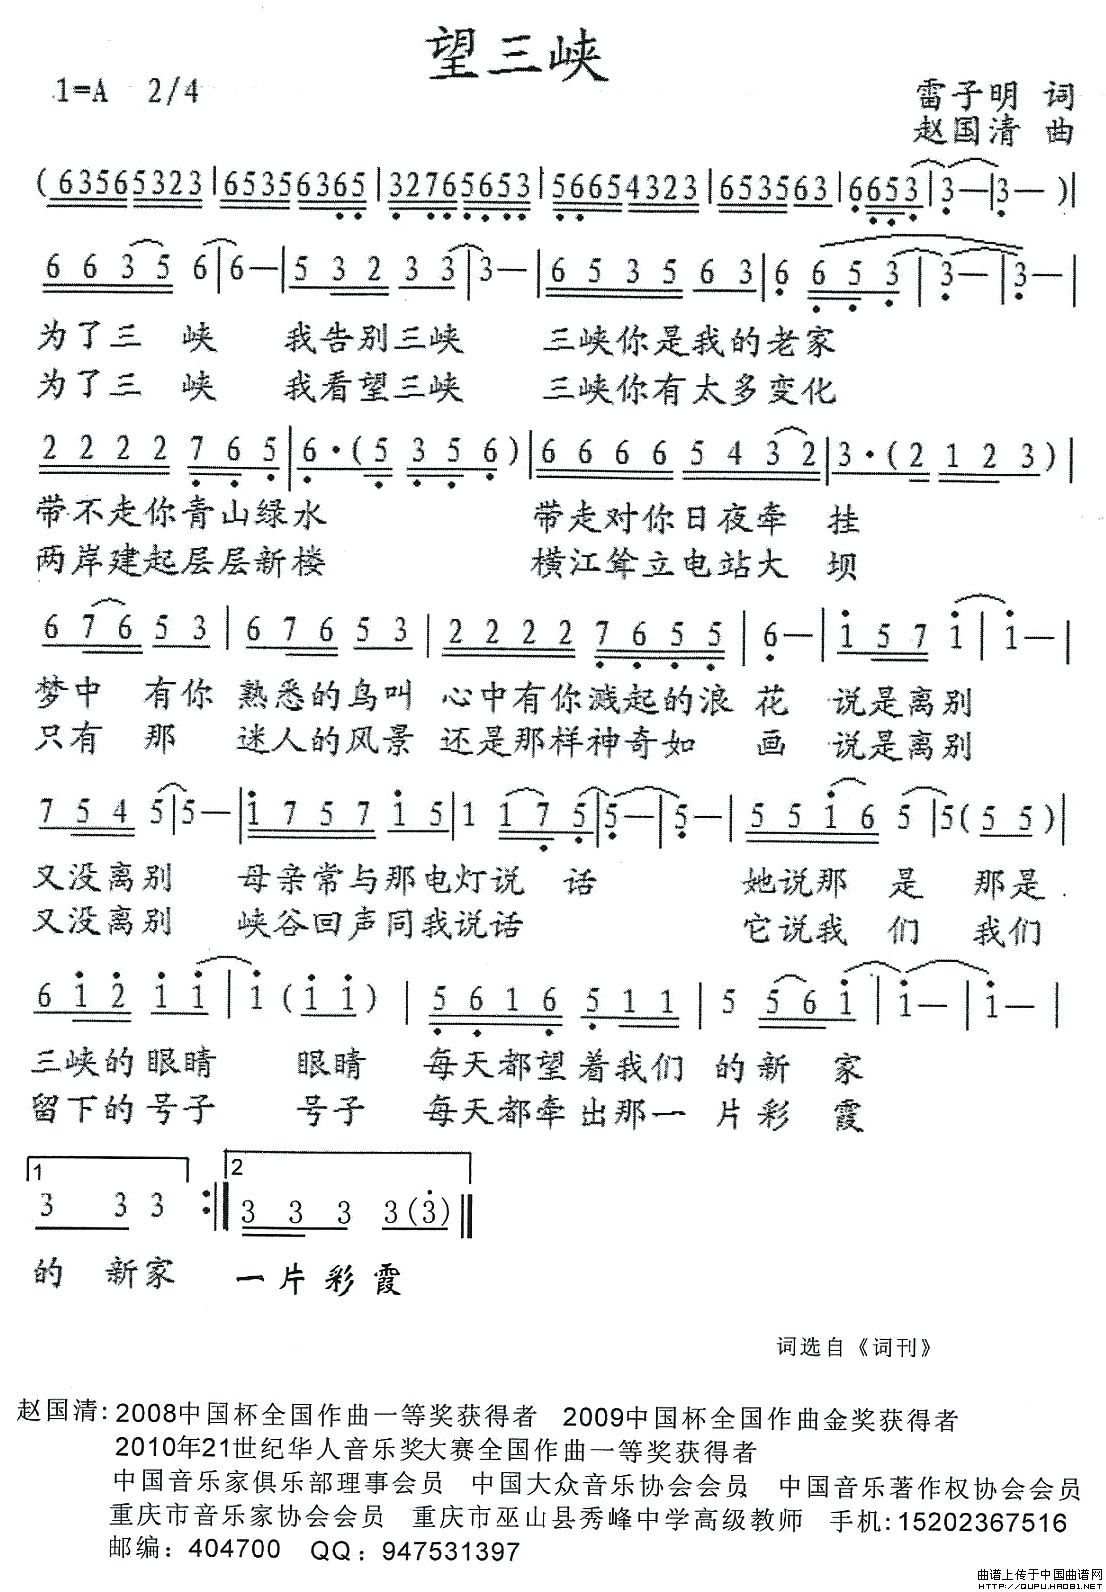 望三峡
1=A 2/4
雷子明 词
赵国清 曲
(63565323|65356365|32765653|56654323|65356563|6653|3—|3—)|
6635 6|6—|532 33|3—|6535 63|6 653|3—|3—|
为了三 峡 我告别三峡 三峡你是我的老家
为了三 峡 我看望三峡 三峡你有太多变化
2222 765|6·(5 356)|6666 5432|3·(2 123)|
带不走你青山绿水 带走对你日夜牵 挂
两岸建起层层新楼 横江耸立电站大 坝
676 53|676 53|2222 7655|6—|157 1|1—|
梦中 有你 熟悉的鸟叫 心中有你溅起的浪 花 说是离别
只有 那 迷人的风景 还是那样神奇如 画 说是离别
754 5|5—|1757 15|1 175|5—|5—|5516 5|5(55)|
又没离别 母亲常与那电灯说 话 她说那 是 那是
又没离别 峡谷回声同我说话 它说我 们 我们
612 11|1(11)|5616 511|5 561|1—|1—|
三峡的眼睛 眼睛 每天都望着我们 的新 家
留下的号子 号子 每天都牵出那一 片彩 霞
1 2
3 3 3 :‖ 3 3 3 3(3)‖
的 新家 一片彩霞
词选自《词刊》
赵国清: 2008中国杯全国作曲一等奖获得者 2009中国杯全国作曲金奖获得者
2010年21世纪华人音乐奖大赛全国作曲一等奖获得者
中国音乐家俱乐部理事会员 中国大众音乐协会会员 中国音乐著作权协会会员
重庆市音乐家协会会员 重庆市巫山县秀峰中学高级教师 手机:15202367516
邮编：404700 QQ：947531397
曲谱上传于中国曲谱网
HTTP://QUPU.HAO81.NET